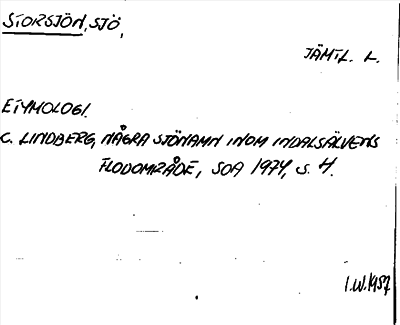 STORSJÖN, SJÖ,
JÄMTL. L.
ETYMOLOGI.
C. LINDBERG, NÅGRA SJÖNAMN INOM INDALSÄLVENS
FLODOMRÅDE, SOA 1974, S. 4.
I.W. 1987